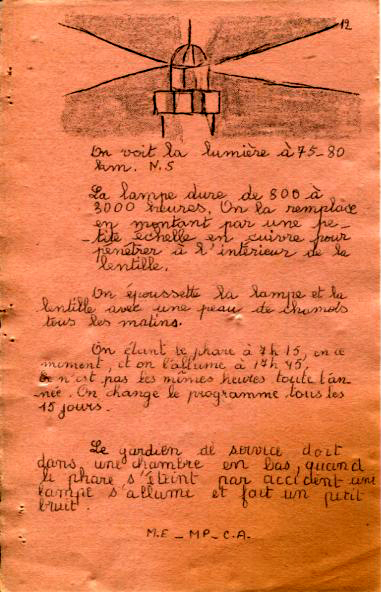 12
On voit la lumière à 75-80
km. N.S
La lampe dure de 800 à
3000 heures. On la remplace
en montant par une pe-
tite échelle en cuivre pour
pénétrer à l'intérieur de la
lentille.
On époussette la lampe et la
lentille avec une peau de chamois
tous les matins.
On éteint le phare à 7h 15, en ce
moment, et on l'allume à 17h 45.
Ce n'est pas les mêmes heures toute l'an-
née. On change le programme tous les
15 jours.
Le gardien de service dort
dans une chambre en bas, quand
le phare s'éteint par accident une
lampe s'allume et fait un petit
bruit.
M.E _ MP _ C.A.